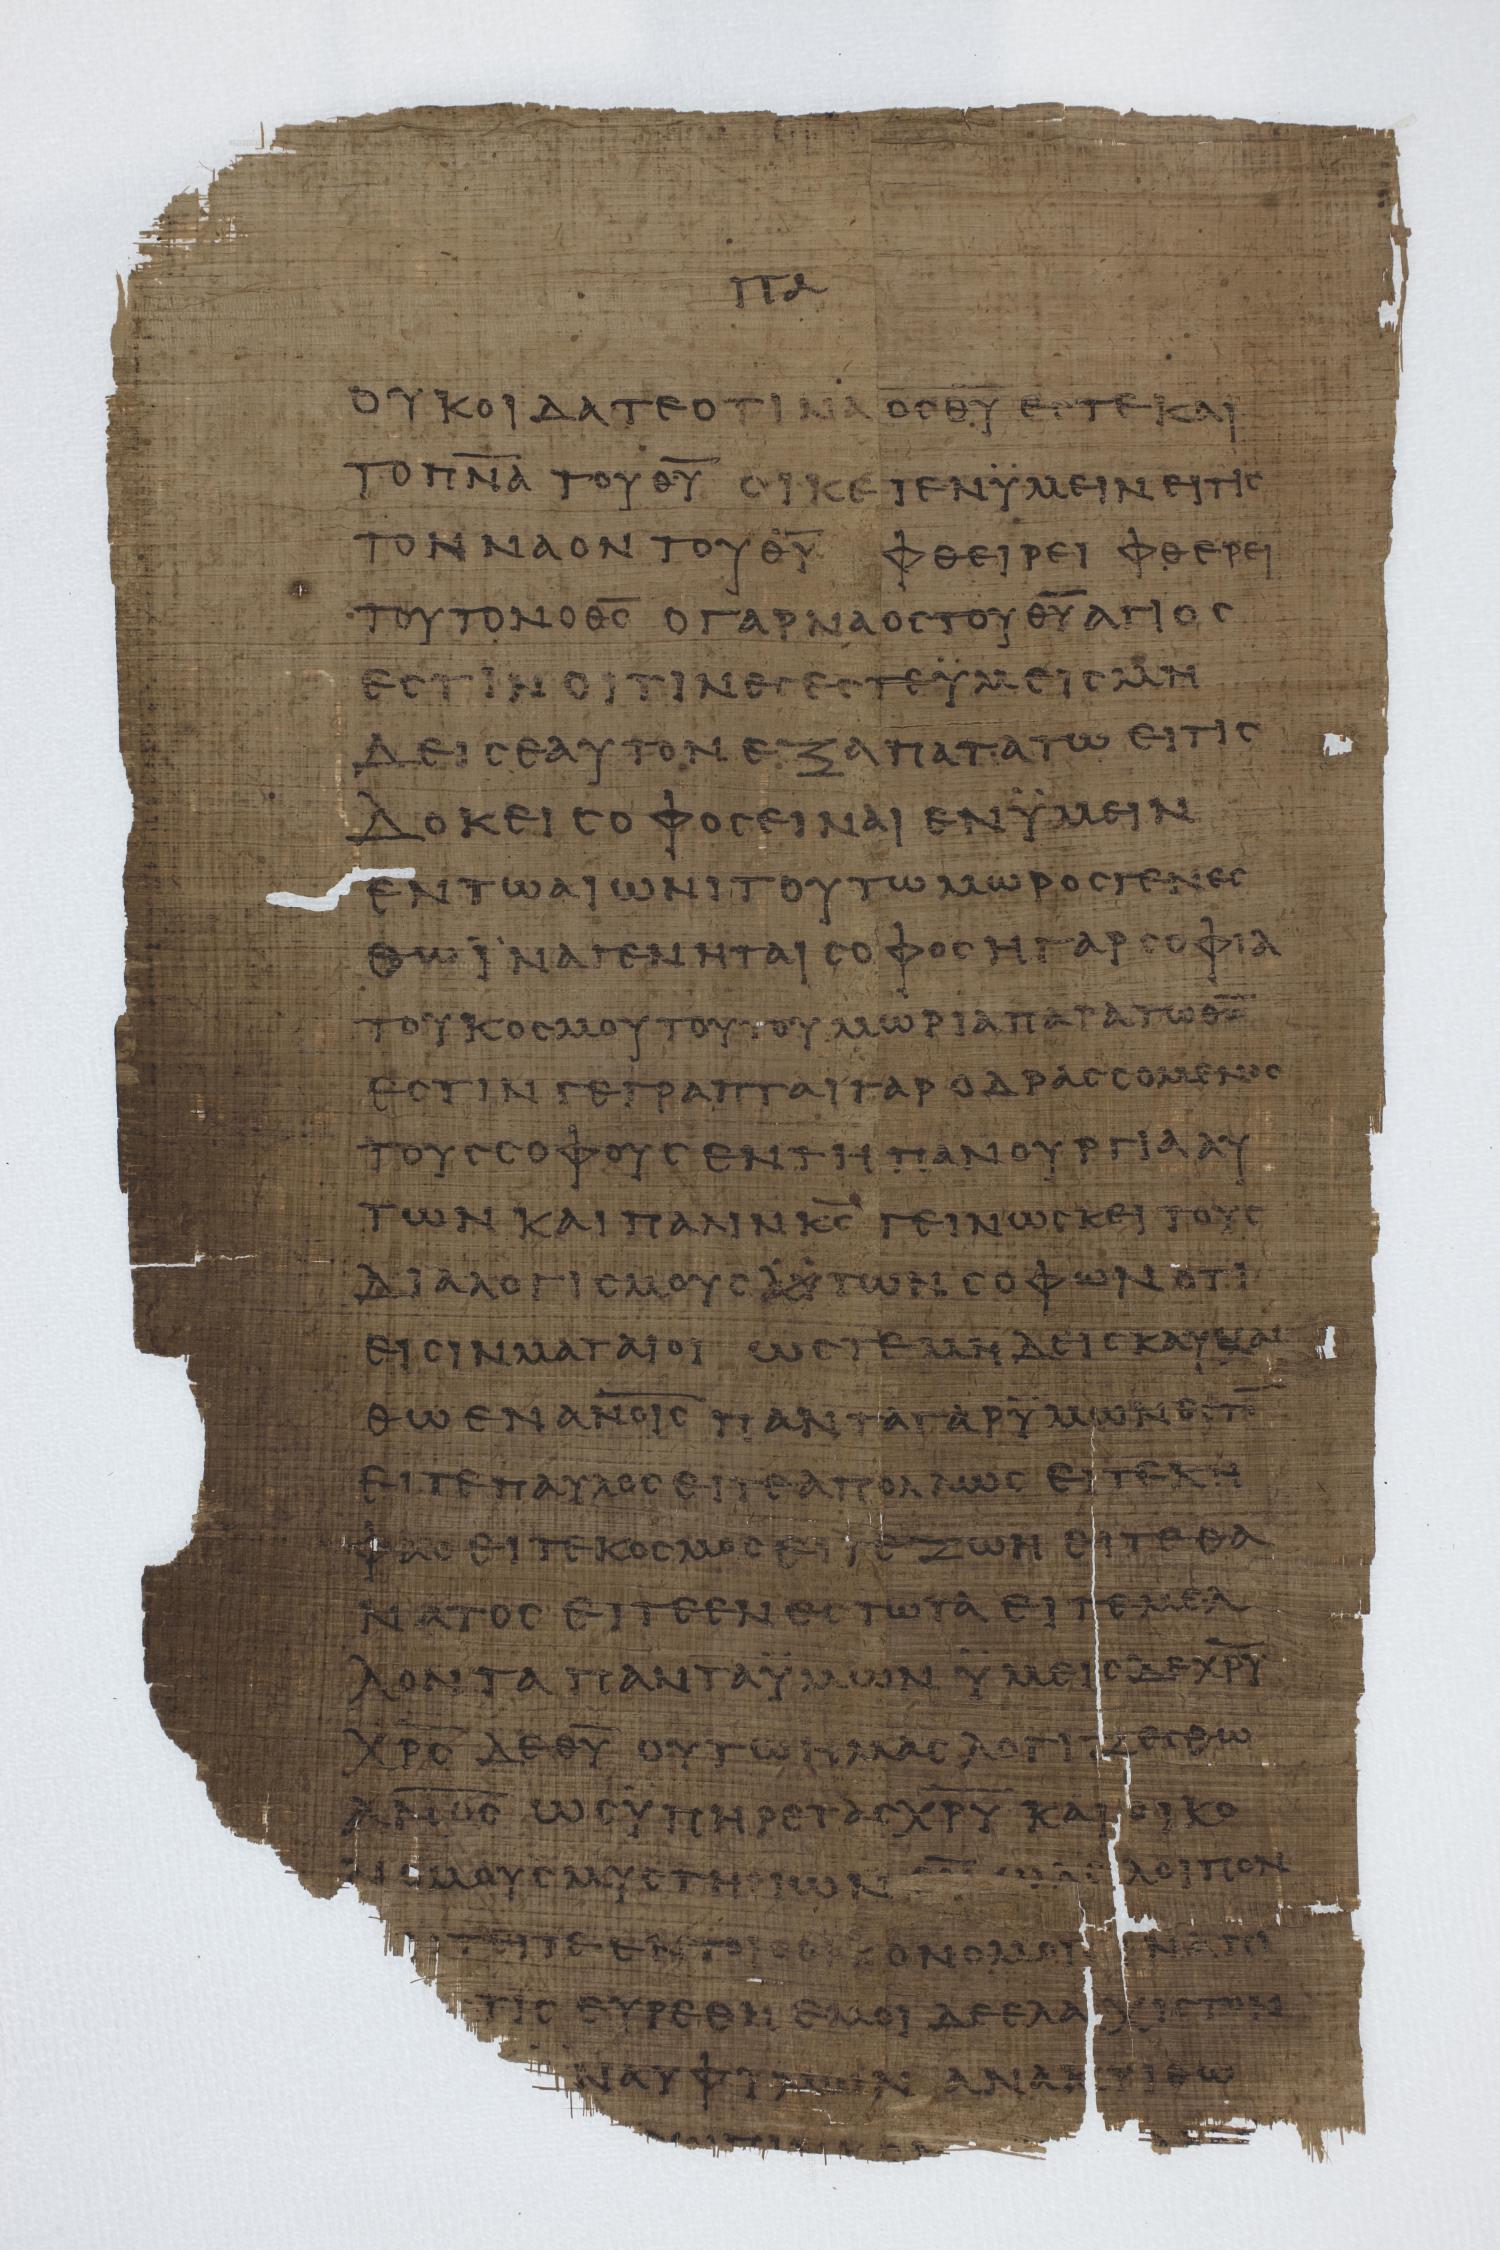 πα
ουκοιδατεοτιναοσθ̅υ̅εστεκαι
τοπ̅ν̅α̅ τουθ̅υ̅ οικειενϋμεινειτισ
τονναοντουθ̅υ̅ φθειρει φθερει
τουτονοθ̅σ̅ ογαρναοστουθ̅υ̅αγιοσ
εστινοιτινεσεστεϋμεισμη
δεισεαυτονεξαπατατωειτισ
δοκεισοφοσειναιενϋμειν
εντωαιωνιτουτωμωροσγενεσ
θωϊναγενηταισοφοσηγαρσοφια
τουκοσμουτουτουμωριαπαρατωθ̅ω̅
εστινγεγραπταιγαροδρασσομενοσ
τουσσοφουσεντηπανουργιααυ
τωνκαιπαλινκ̅σ̅ γεινωσκειτουσ
διαλογισμουστωνσοφωνοτι
εισινματαιοι ωστεμηδεισκαυχασ
θωενα̅ν̅ο̅ι̅σ̅ πανταγαρϋμωνεστι̅
ειτεπαυλοσειτεαπολλωσειτεκη
φασειτεκοσμοσειτεζωηειτεθα
νατοσειτεενεστωταειτεμελ
λονταπανταϋμωνϋμεισδεχ̅ρ̅υ̅
χ̅ρ̅σ̅ δεθ̅υ̅ ουτωημασλογιζεσθω
α̅ν̅ο̅σ̅ ωσϋπηρετασχ̅ρ̅υ̅ καιοικο
νομουσμυστηριων λοιπον
ζητειτεεντοισοικονομοισϊνατισ
τισευρεθηεμοιδεελαχιστον
ϊναυφϋμωνανακριθω